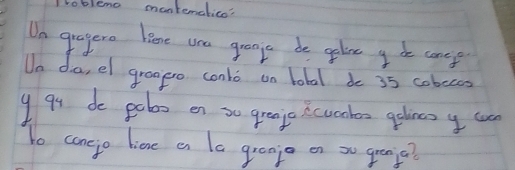 Problema mantematico:
Un gragero tiene una granja de galina y de conejo.
Un dia, el granjero contó un total de 35 cabezas
y 94 de patas en su granja ¿cuantas galinas y cuan
to conejo tiene en la granja en su granja?